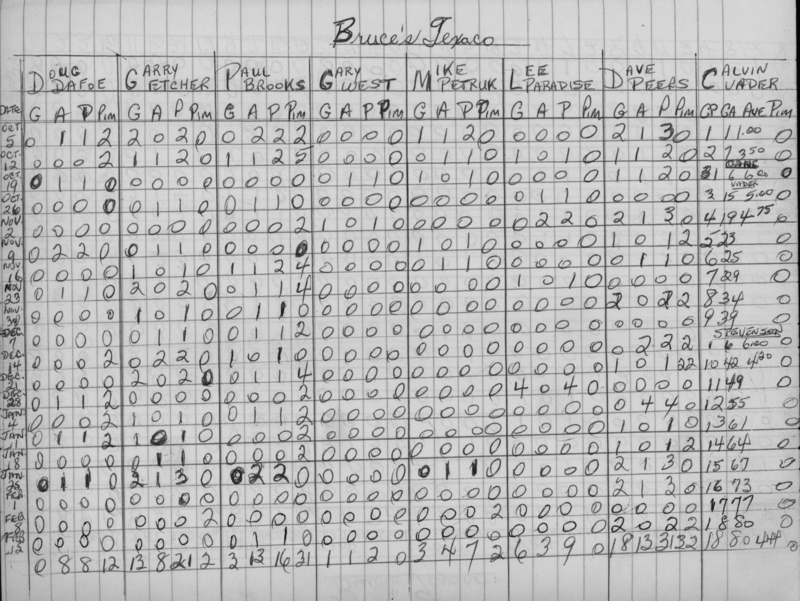 Bruce's Texaco
Doug Garry Paul Gary Mike Lee Dave Calvin
Dafoe Fetcher Brooks West Petruk Paradise Peers Vader
Date G A P Pim G A P Pim G A P Pim G A P Pim G A P Pim G A P Pim G A P Pim GP GA Ave Pim
Oct 5 0 1 1 2 2 0 2 0 0 2 2 2 0 0 0 0 1 1 2 0 0 0 0 0 2 1 3 0 1 1 1.00 0
Oct 12 0 0 0 2 1 1 2 0 1 1 2 5 0 0 0 0 0 1 1 0 1 0 1 0 1 1 2 0 2 7 3.50 0
Oct 19 0 1 1 0 0 0 0 0 0 0 0 0 0 1 1 0 1 0 1 0 0 0 0 0 1 1 2 0 1 6 6.00 0
Vader
Oct 26 0 0 0 0 0 1 1 0 0 1 1 0 0 0 0 0 0 0 0 0 0 1 1 0 0 0 0 0 3 15 5.00 0
Nov 2 0 0 0 0 0 0 0 0 0 0 0 2 1 0 1 0 0 0 0 0 0 2 2 0 2 1 3 0 4 19 4.75 0
Nov 9 0 2 2 0 0 1 1 0 0 0 0 0 0 0 0 0 1 0 1 0 0 0 0 0 1 0 1 2 5 23 0
Nov 16 0 0 0 0 1 0 1 0 1 1 2 4 0 0 0 0 0 1 1 0 0 0 0 0 0 1 1 0 6 25 0
Nov 23 0 1 1 0 2 0 2 0 0 1 1 4 0 0 0 0 0 0 0 0 1 0 1 0 0 0 0 0 7 29 0
Nov 30 0 0 0 0 1 0 1 0 0 1 1 0 0 0 0 0 0 0 0 0 0 0 0 0 2 0 2 2 8 34 0
Dec 7 0 0 0 0 0 1 1 0 0 1 1 2 0 0 0 0 0 0 0 0 0 0 0 0 0 0 0 0 9 39 0
Stevenson
Dec 14 0 0 0 2 0 2 2 0 1 0 1 0 0 0 0 0 0 0 0 0 0 0 0 0 0 2 2 2 1 6 6.00 0
Dec 21 0 0 0 0 2 0 2 0 0 1 1 4 0 0 0 0 0 0 0 0 0 0 0 0 1 0 1 22 10 42 4.20 0
Dec 28 0 1 1 2 0 0 0 0 0 0 0 2 0 0 0 0 0 0 0 0 4 0 4 0 0 0 0 0 11 49 0
Jan 4 0 0 0 2 1 0 1 0 0 1 1 2 0 0 0 0 0 0 0 0 0 0 0 0 0 4 4 0 12 55 0
Jan 0 1 1 2 1 0 1 0 0 0 0 2 0 0 0 0 0 0 0 0 0 0 0 0 1 0 1 0 13 61 0
Jan 18 0 0 0 0 0 1 1 0 0 0 0 0 0 0 0 0 0 0 0 0 0 0 0 0 1 0 1 2 14 64 0
Jan 25 0 1 1 0 2 1 3 0 0 2 2 0 0 0 0 0 0 1 1 0 0 0 0 0 2 1 3 0 15 67 0
Feb 0 0 0 0 0 0 0 0 0 0 0 0 0 0 0 0 0 0 0 0 0 0 0 0 2 1 3 0 16 73 0
Feb 8 0 0 0 0 0 0 0 2 0 0 0 0 0 0 0 0 0 0 0 2 0 0 0 0 0 0 0 0 17 77 0
Feb 12 0 0 0 0 0 0 0 0 0 1 1 0 0 0 0 0 0 0 0 0 0 0 0 0 2 0 2 2 18 80 0
0 8 8 12 13 8 21 2 3 13 16 31 1 1 2 0 3 4 7 2 6 3 9 0 18 13 31 32 18 80 4.44 0